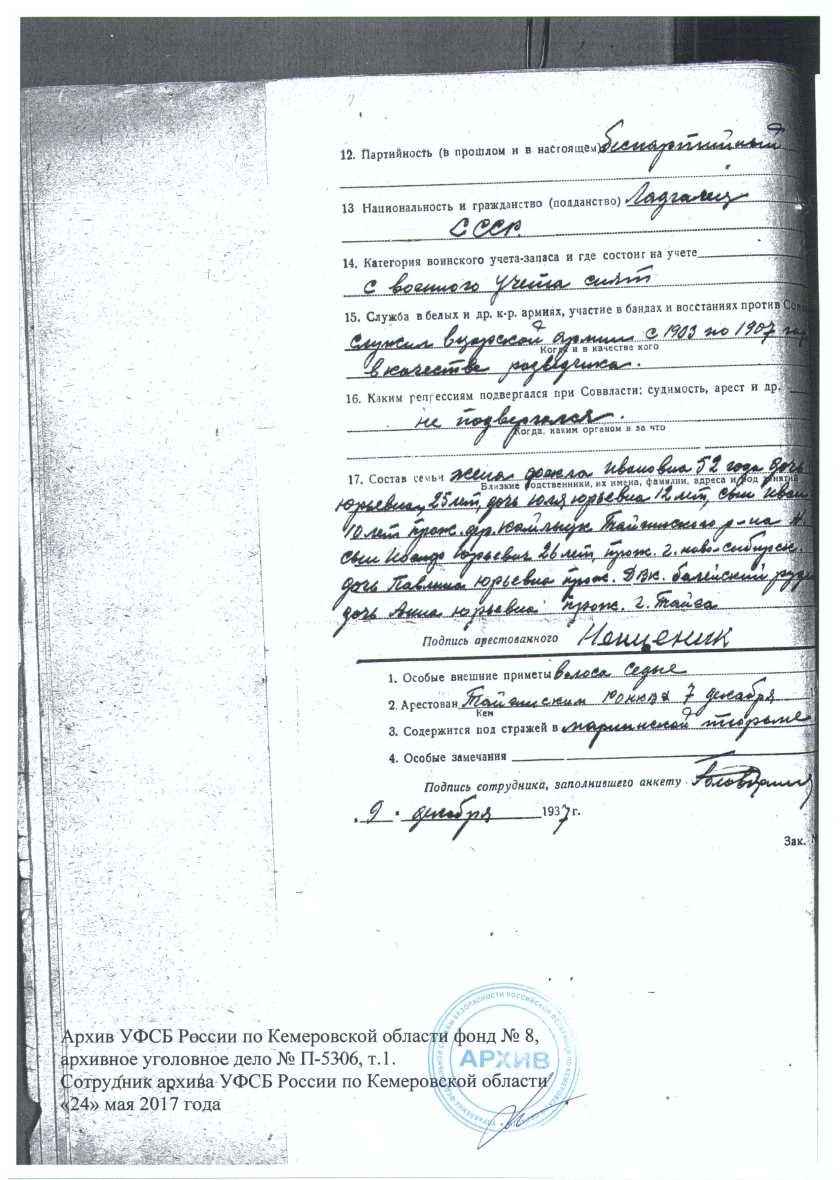 12. Партийность (в прошлом и в настоящем) беспартийный
13 Национальность и гражданство (подданство) Ладгалец
СССР.
14. Категория воинского учета-запаса и где состоит на учете
с военного учета снят
15. Служба в белых и др. к-р. армиях, участие в бандах и восстаниях против Сов
служил в царской армии с 1903 по 1907 год
Когда и в качестве кого
в качестве разведчика.
16. Каким репрессиям подвергался при Соввласти: судимость, арест и др.
не подвергался.
Когда, каким органом и за что
17. Состав семьи жена Ивановна 52 года дочь
Близкие родственники, их имена, фамилии, адреса и род занятий
юрьевна, 25 лет, дочь юля юрьевна 12 лет, сын Иван
10 лет прож. Тайгинского р-на
сын юрьевич 26 лет, прож. г. ново-сибирск.
дочь Павлина юрьевна прож. ДВК. балейский
дочь Анна юрьевна прож. г. Тайга
Подпись арестованного
1. Особые внешние приметы волоса седые
2. Арестован Тайгинским 7 декабря
Кем
3. Содержится под стражей в мариинской тюрьме
4. Особые замечания
Подпись сотрудника, заполнившего анкету
9 декабря 1937 г.
Зак.
Архив УФСБ России по Кемеровской области фонд № 8,
архивное уголовное дело № П-5306, т.1.
Сотрудник архива УФСБ России по Кемеровской области
«24» мая 2017 года
АРХИВ